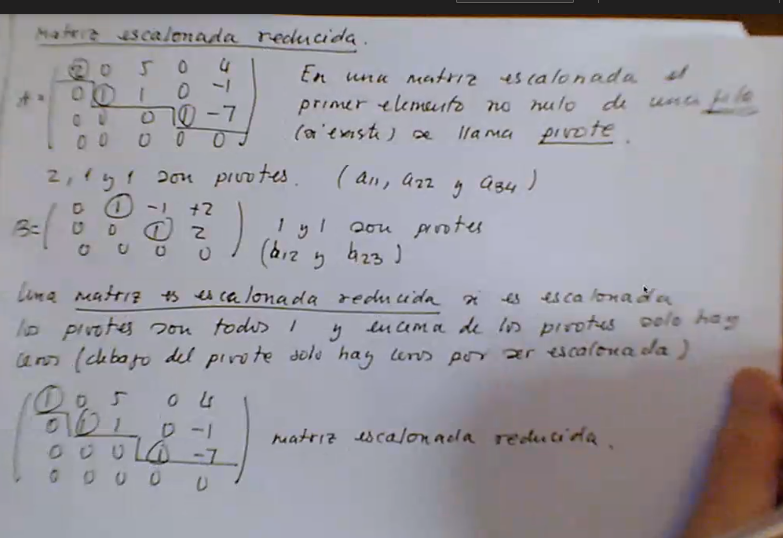 Matriz escalonada reducida.
A = ( 2 0 5 0 4 En una matriz escalonada el
0 1 1 0 -1 primer elemento no nulo de una fila
0 0 0 1 -7 (si existe) se llama pivote.
0 0 0 0 0 )
2, 1 y 1 son pivotes. (a11, a22 y a34)
B = ( 0 1 -1 +2
0 0 1 2 1 y 1 son pivotes
0 0 0 0 ) (b12 y b23)
Una matriz es escalonada reducida si es escalonada
los pivotes son todos 1 y encima de los pivotes solo hay
ceros (debajo del pivote solo hay ceros por ser escalonada)
( 1 0 5 0 4
0 1 1 0 -1 matriz escalonada reducida.
0 0 0 1 -7
0 0 0 0 0 )